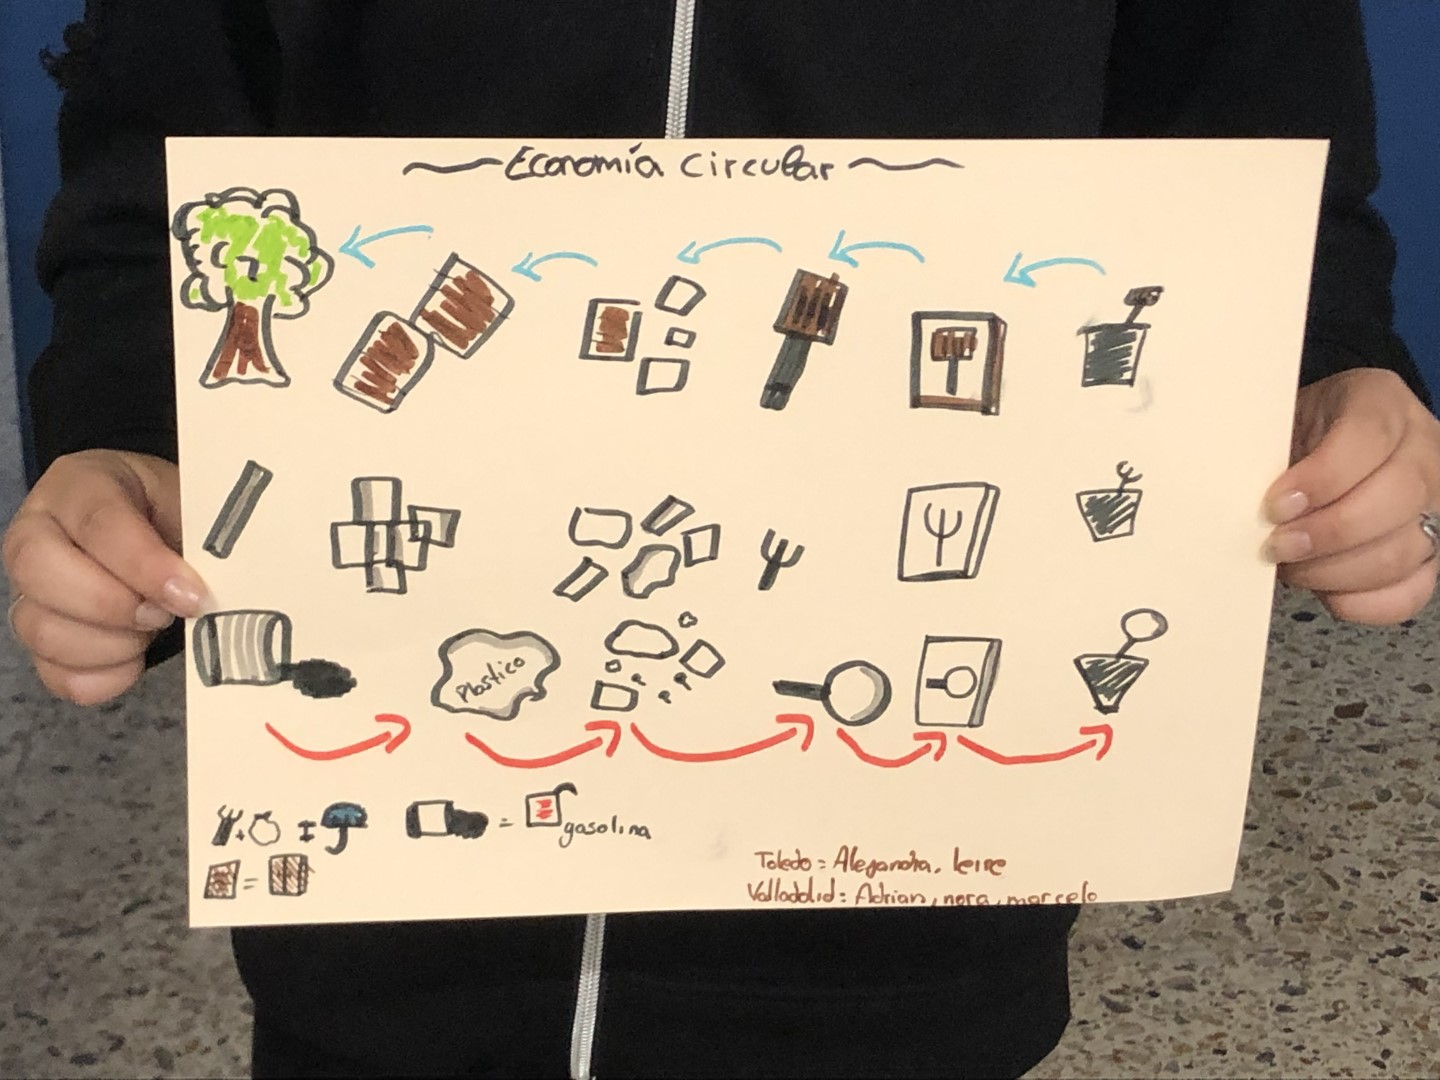 Economía Circular
Plastico
gasolina
Toledo = Alejandra, leire
Valladolid: Adrian, nora, marcelo